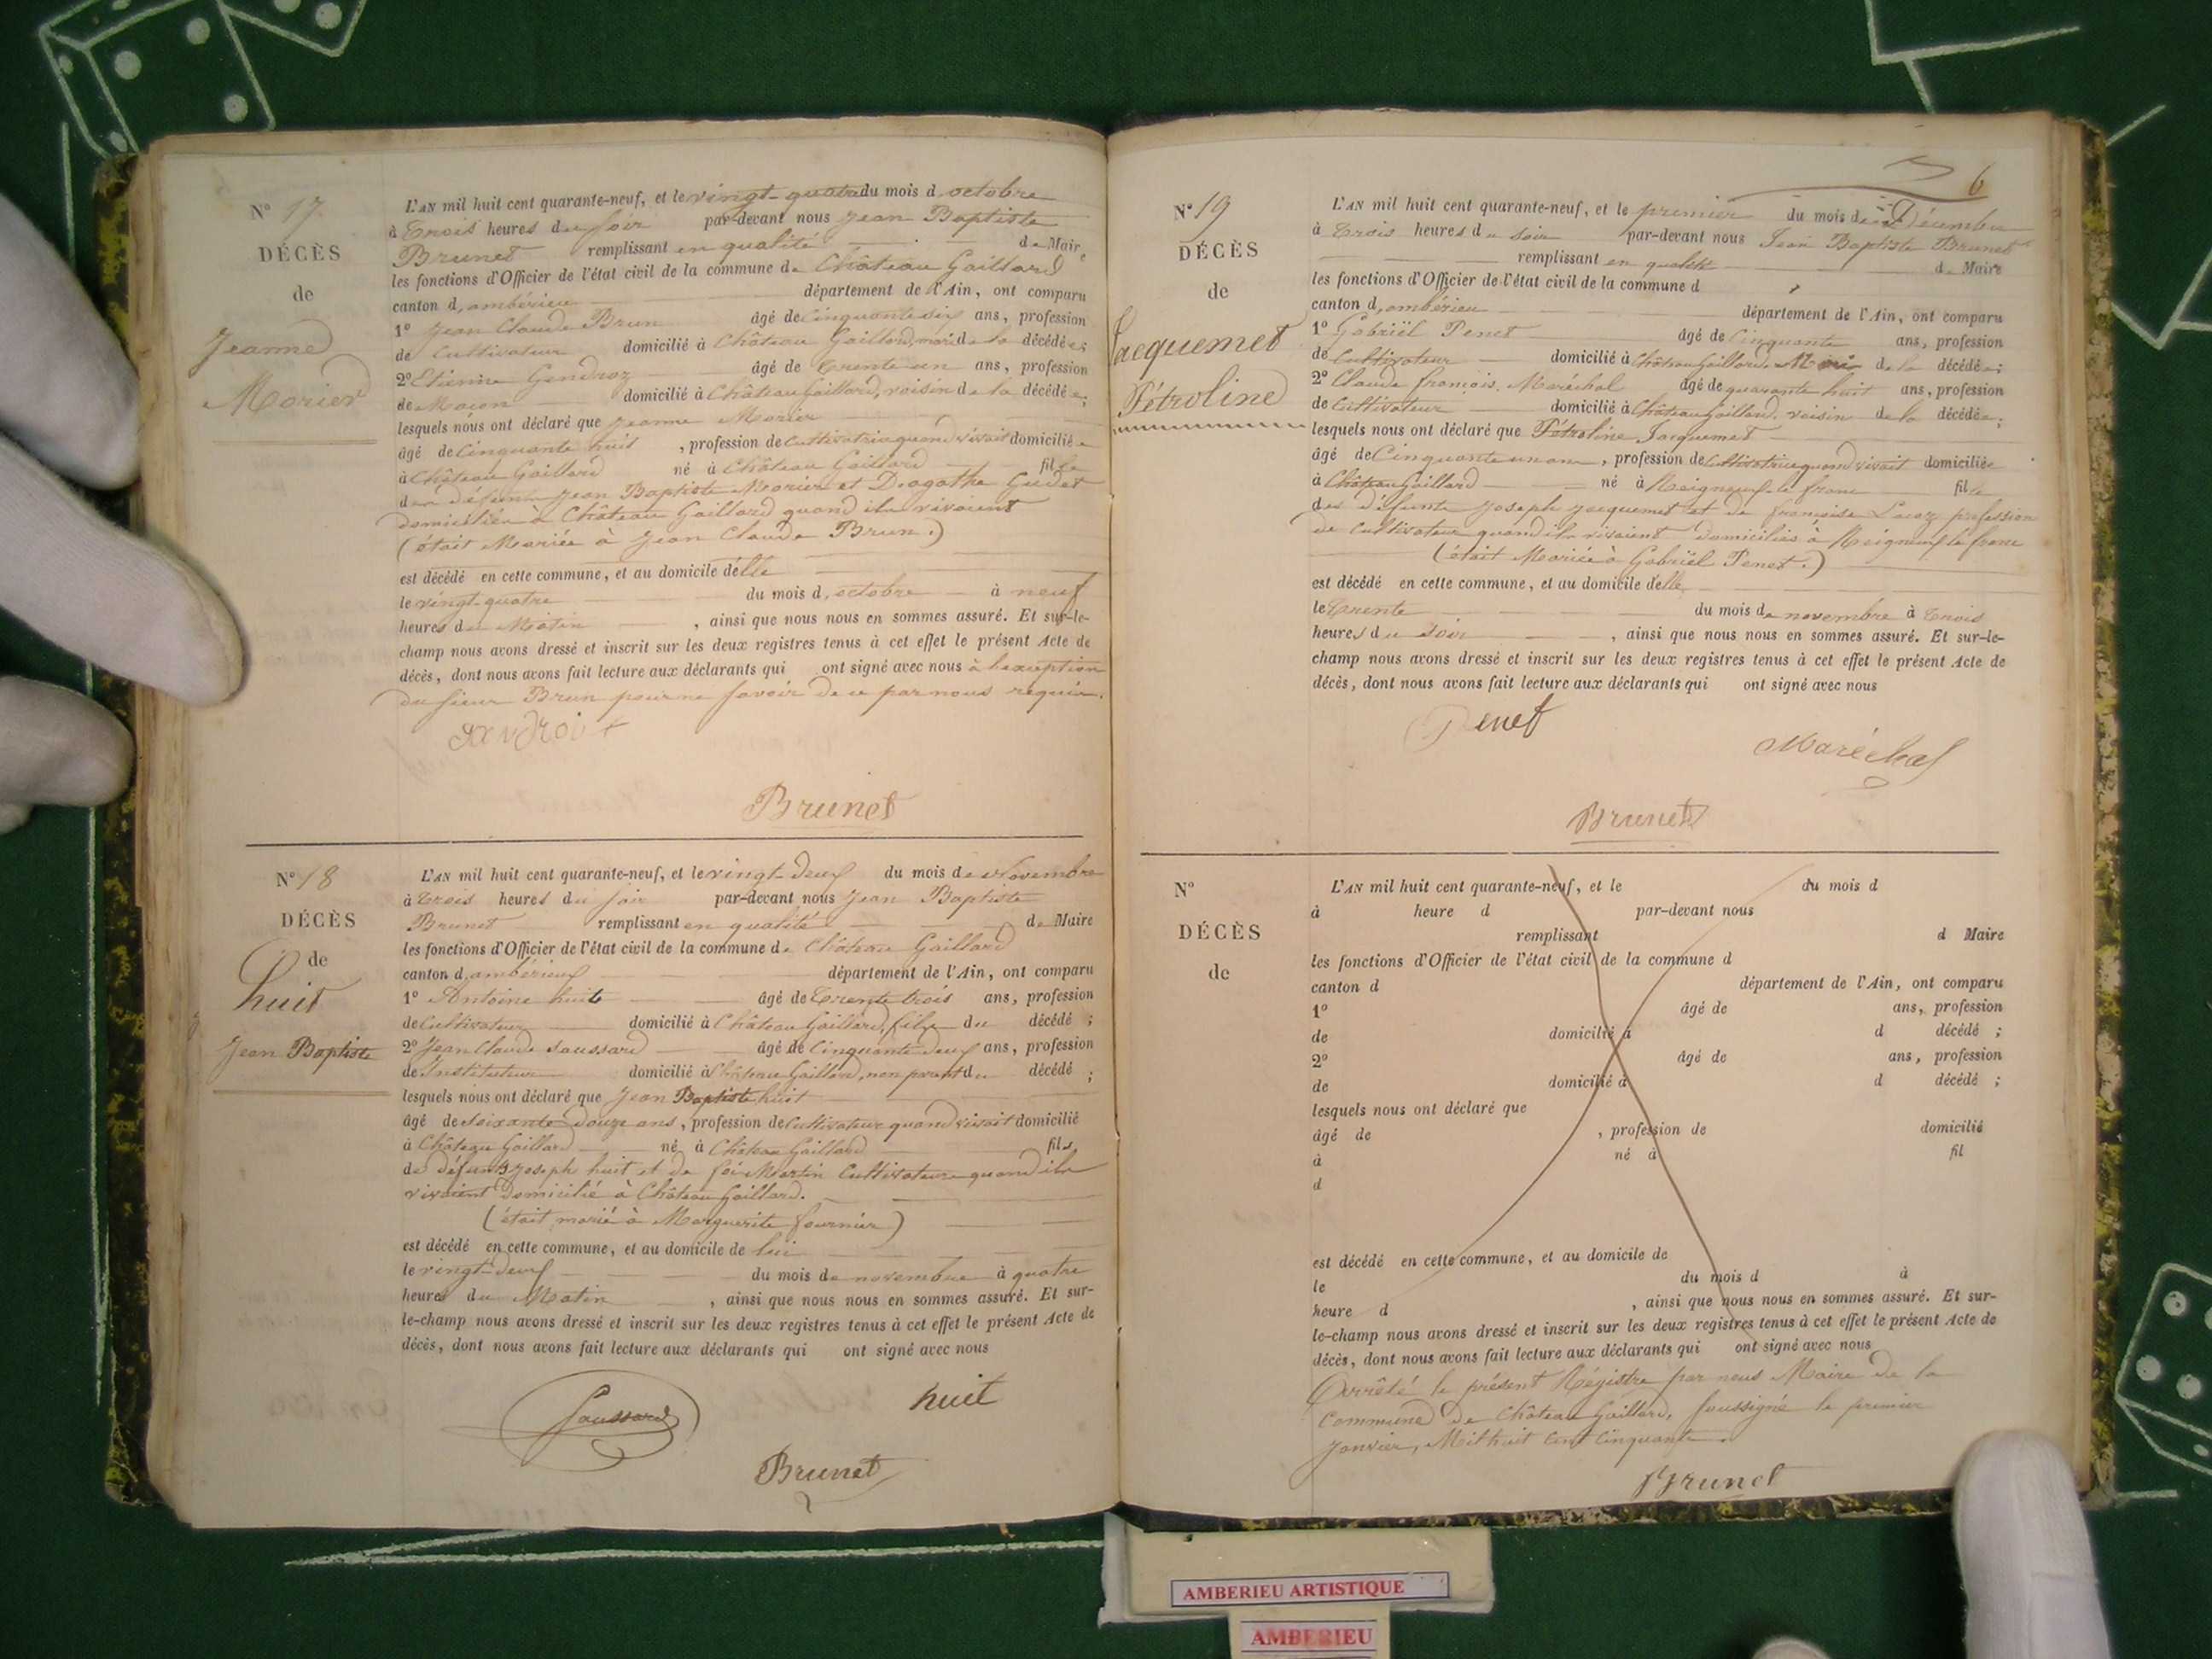 N° 17
DÉCÈS
de
Jeanne
Morier
L'AN mil huit cent quarante-neuf, et le vingt-quatre du mois d'octobre
à trois heures du soir par-devant nous Jean Baptiste
Brunet remplissant en qualité de Maire
les fonctions d'Officier de l'état civil de la commune de Château Gaillard
canton d'ambérieu département de l'Ain, ont comparu
1° Jean Claude Brun âgé de Cinquante six ans, profession
de Cultivateur domicilié à Château Gaillard, mari de la décédée;
2° Etienne Gendroz âgé de trente un ans, profession
de Maçon domicilié à Château Gaillard, voisin de la décédée;
lesquels nous ont déclaré que Jeanne Morier
âgé de Cinquante huit , profession de Cultivatrice quand vivait domiciliée
à Château Gaillard né à Château Gaillard fille
des défunts Jean Baptiste Morier et D'agathe Gudet
domiciliés à Château Gaillard quand ils vivaient
(était Mariée à Jean Claude Brun.)
est décédé en cette commune, et au domicile d'elle
le vingt-quatre du mois d'octobre à neuf
heures du Matin , ainsi que nous nous en sommes assuré. Et sur-le-
champ nous avons dressé et inscrit sur les deux registres tenus à cet effet le présent Acte de
décès, dont nous avons fait lecture aux déclarants qui ont signé avec nous à l'exception
du sieur Brun pour ne savoir de ce par nous requis.
Brunet
N° 18
DÉCÈS
de
huit
Jean Baptiste
L'AN mil huit cent quarante-neuf, et le vingt-deux du mois de Novembre
à trois heures du soir par-devant nous Jean Baptiste
Brunet remplissant en qualité de Maire
les fonctions d'Officier de l'état civil de la commune de Château Gaillard
canton d'ambérieux département de l'Ain, ont comparu
1° Antoine huit âgé de trente trois ans, profession
de Cultivateur domicilié à Château Gaillard, fils du décédé ;
2° Jean Claude Saussard âgé de Cinquante deux ans, profession
de Instituteur domicilié à Château Gaillard, non parent du décédé ;
lesquels nous ont déclaré que Jean Baptiste huit
âgé de Soixante douze ans, profession de Cultivateur quand vivait domicilié
à Château Gaillard né à Château Gaillard fils
de défunts Joseph huit et de Martin Cultivateurs quand ils
vivaient domicilié à Château Gaillard.
(était marié à Marguerite fournier)
est décédé en cette commune, et au domicile de lui
le vingt-deux du mois de novembre à quatre
heures du Matin , ainsi que nous nous en sommes assuré. Et sur-
le-champ nous avons dressé et inscrit sur les deux registres tenus à cet effet le présent Acte de
décès, dont nous avons fait lecture aux déclarants qui ont signé avec nous
Saussard
huit
Brunet
6
N° 19
DÉCÈS
de
Jacquemet
Pétroline
L'AN mil huit cent quarante-neuf, et le premier du mois de Décembre
à trois heures du soir par-devant nous Jean Baptiste Brunet
remplissant en qualité de Maire
les fonctions d'Officier de l'état civil de la commune d
canton d'ambérieu département de l'Ain, ont comparu
1° Gabriël Penet âgé de Cinquante ans, profession
de Cultivateur domicilié à Château Gaillard, Mari de la décédée;
2° Claude françois Maréchal âgé de quarante huit ans, profession
de Cultivateur domicilié à Château Gaillard, voisin de la décédée;
lesquels nous ont déclaré que Pétroline Jacquemet
âgé de Cinquante un ans, profession de Cultivatrice quand vivait domiciliée
à Château Gaillard né à Reigneux le franc fille
des défunts Joseph Jacquemet et de françoise profession
de Cultivateur quand ils vivaient domiciliés à Reigneux le franc
(était Mariée à Gabriël Penet.)
est décédé en cette commune, et au domicile d'elle
le trente du mois de novembre à trois
heures du soir , ainsi que nous nous en sommes assuré. Et sur-le-
champ nous avons dressé et inscrit sur les deux registres tenus à cet effet le présent Acte de
décès, dont nous avons fait lecture aux déclarants qui ont signé avec nous
Penet
Maréchal
Brunet
N°
DÉCÈS
de
L'AN mil huit cent quarante-neuf, et le du mois d
à heure d par-devant nous
remplissant d Maire
les fonctions d'Officier de l'état civil de la commune d
canton d département de l'Ain, ont comparu
1° âgé de ans, profession
de domicilié à d décédé ;
2° âgé de ans, profession
de domicilié à d décédé ;
lesquels nous ont déclaré que
âgé de , profession de domicilié
à né à fil
d
est décédé en cette commune, et au domicile de
le du mois d à
heure d , ainsi que nous nous en sommes assuré. Et sur-
le-champ nous avons dressé et inscrit sur les deux registres tenus à cet effet le présent Acte de
décès, dont nous avons fait lecture aux déclarants qui ont signé avec nous
Arrêté le présent Régistre par nous Maire de la
Commune de Château Gaillard, soussigné le premier
Janvier, Mil huit Cent Cinquante.
Brunet
AMBERIEU ARTISTIQUE
AMBERIEU